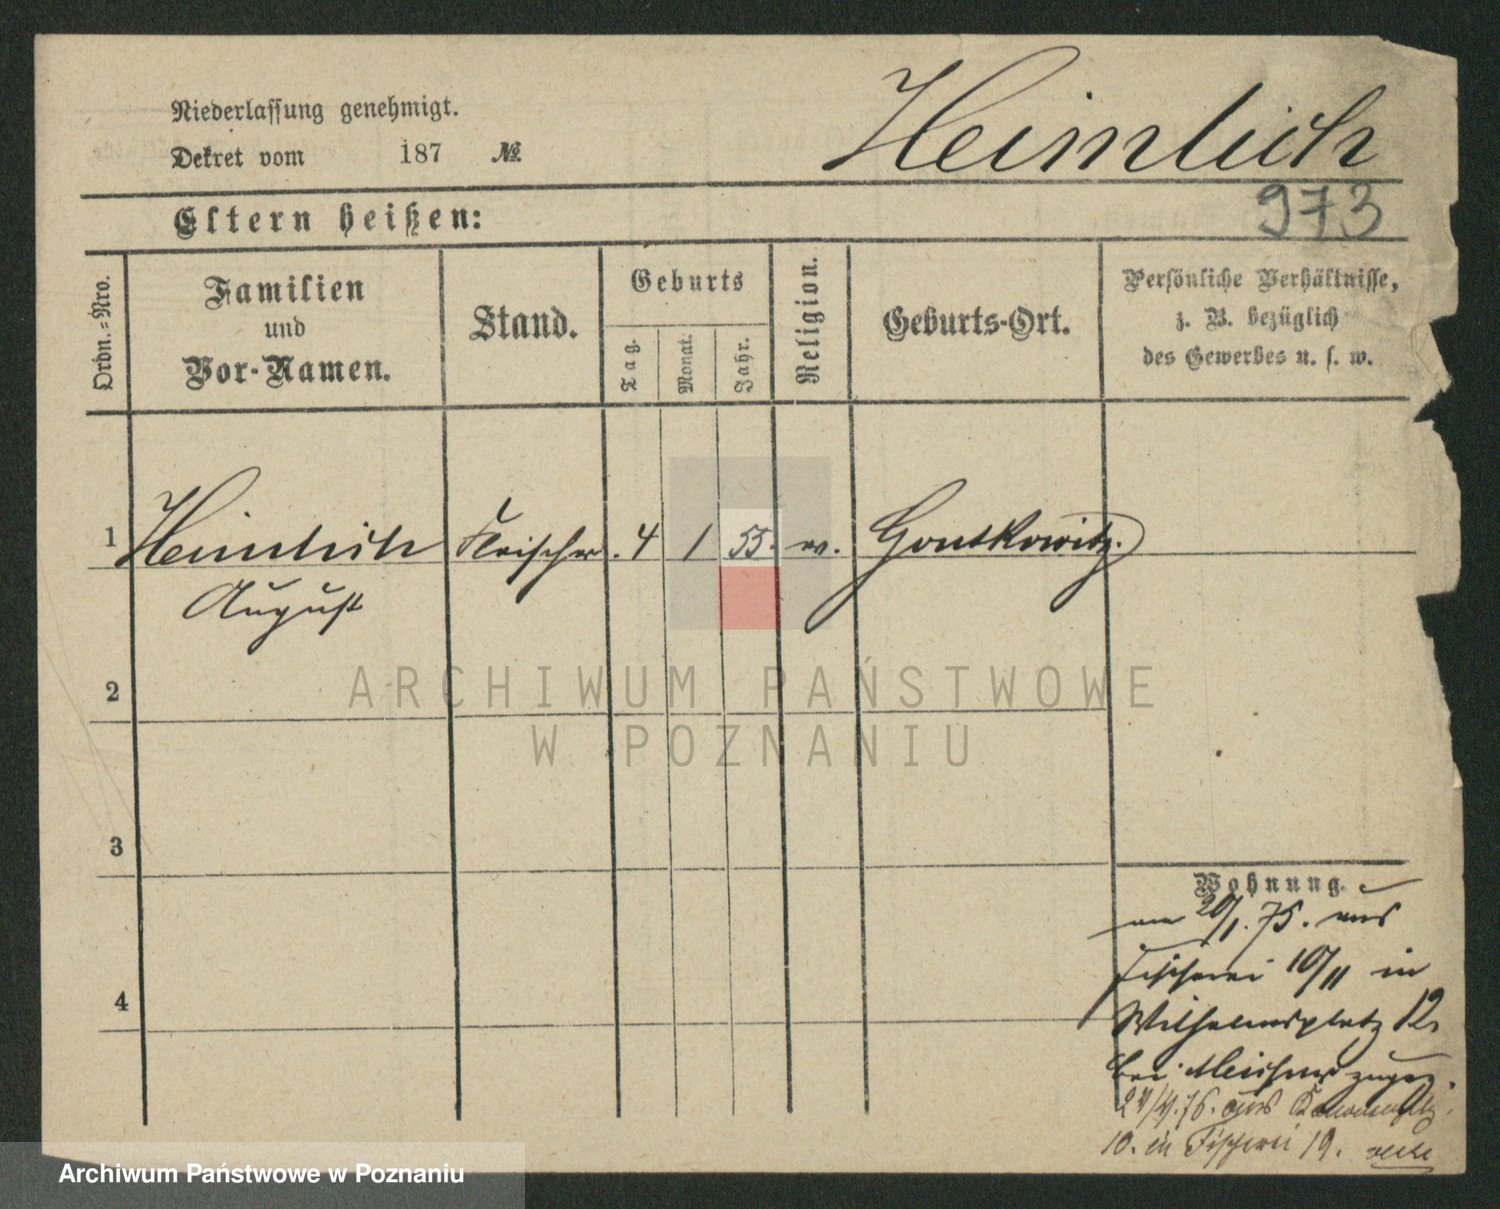 Niederlassung genehmigt.
Dekret vom 187 №
Heimlich
973
Eltern heißen:
Ordn.=Nro.
Familien
und
Vor-Namen.
Stand.
Geburts
Tag.
Monat.
Jahr.
Religion.
Geburts-Ort.
Persönliche Verhältnisse,
z. B. bezüglich
des Gewerbes u. s. w.
1 Heimlich Fleischer. 4 1 55.
August
2
ARCHIWUM PAŃSTWOWE
W POZNANIU
3
Wohnung.
20/1. 75. aus
Fischerei 10/11 in
4
Wilhelmsplatz 12
bei
24/4. 76. aus
10. in Fischerei 19.
Archiwum Państwowe w Poznaniu